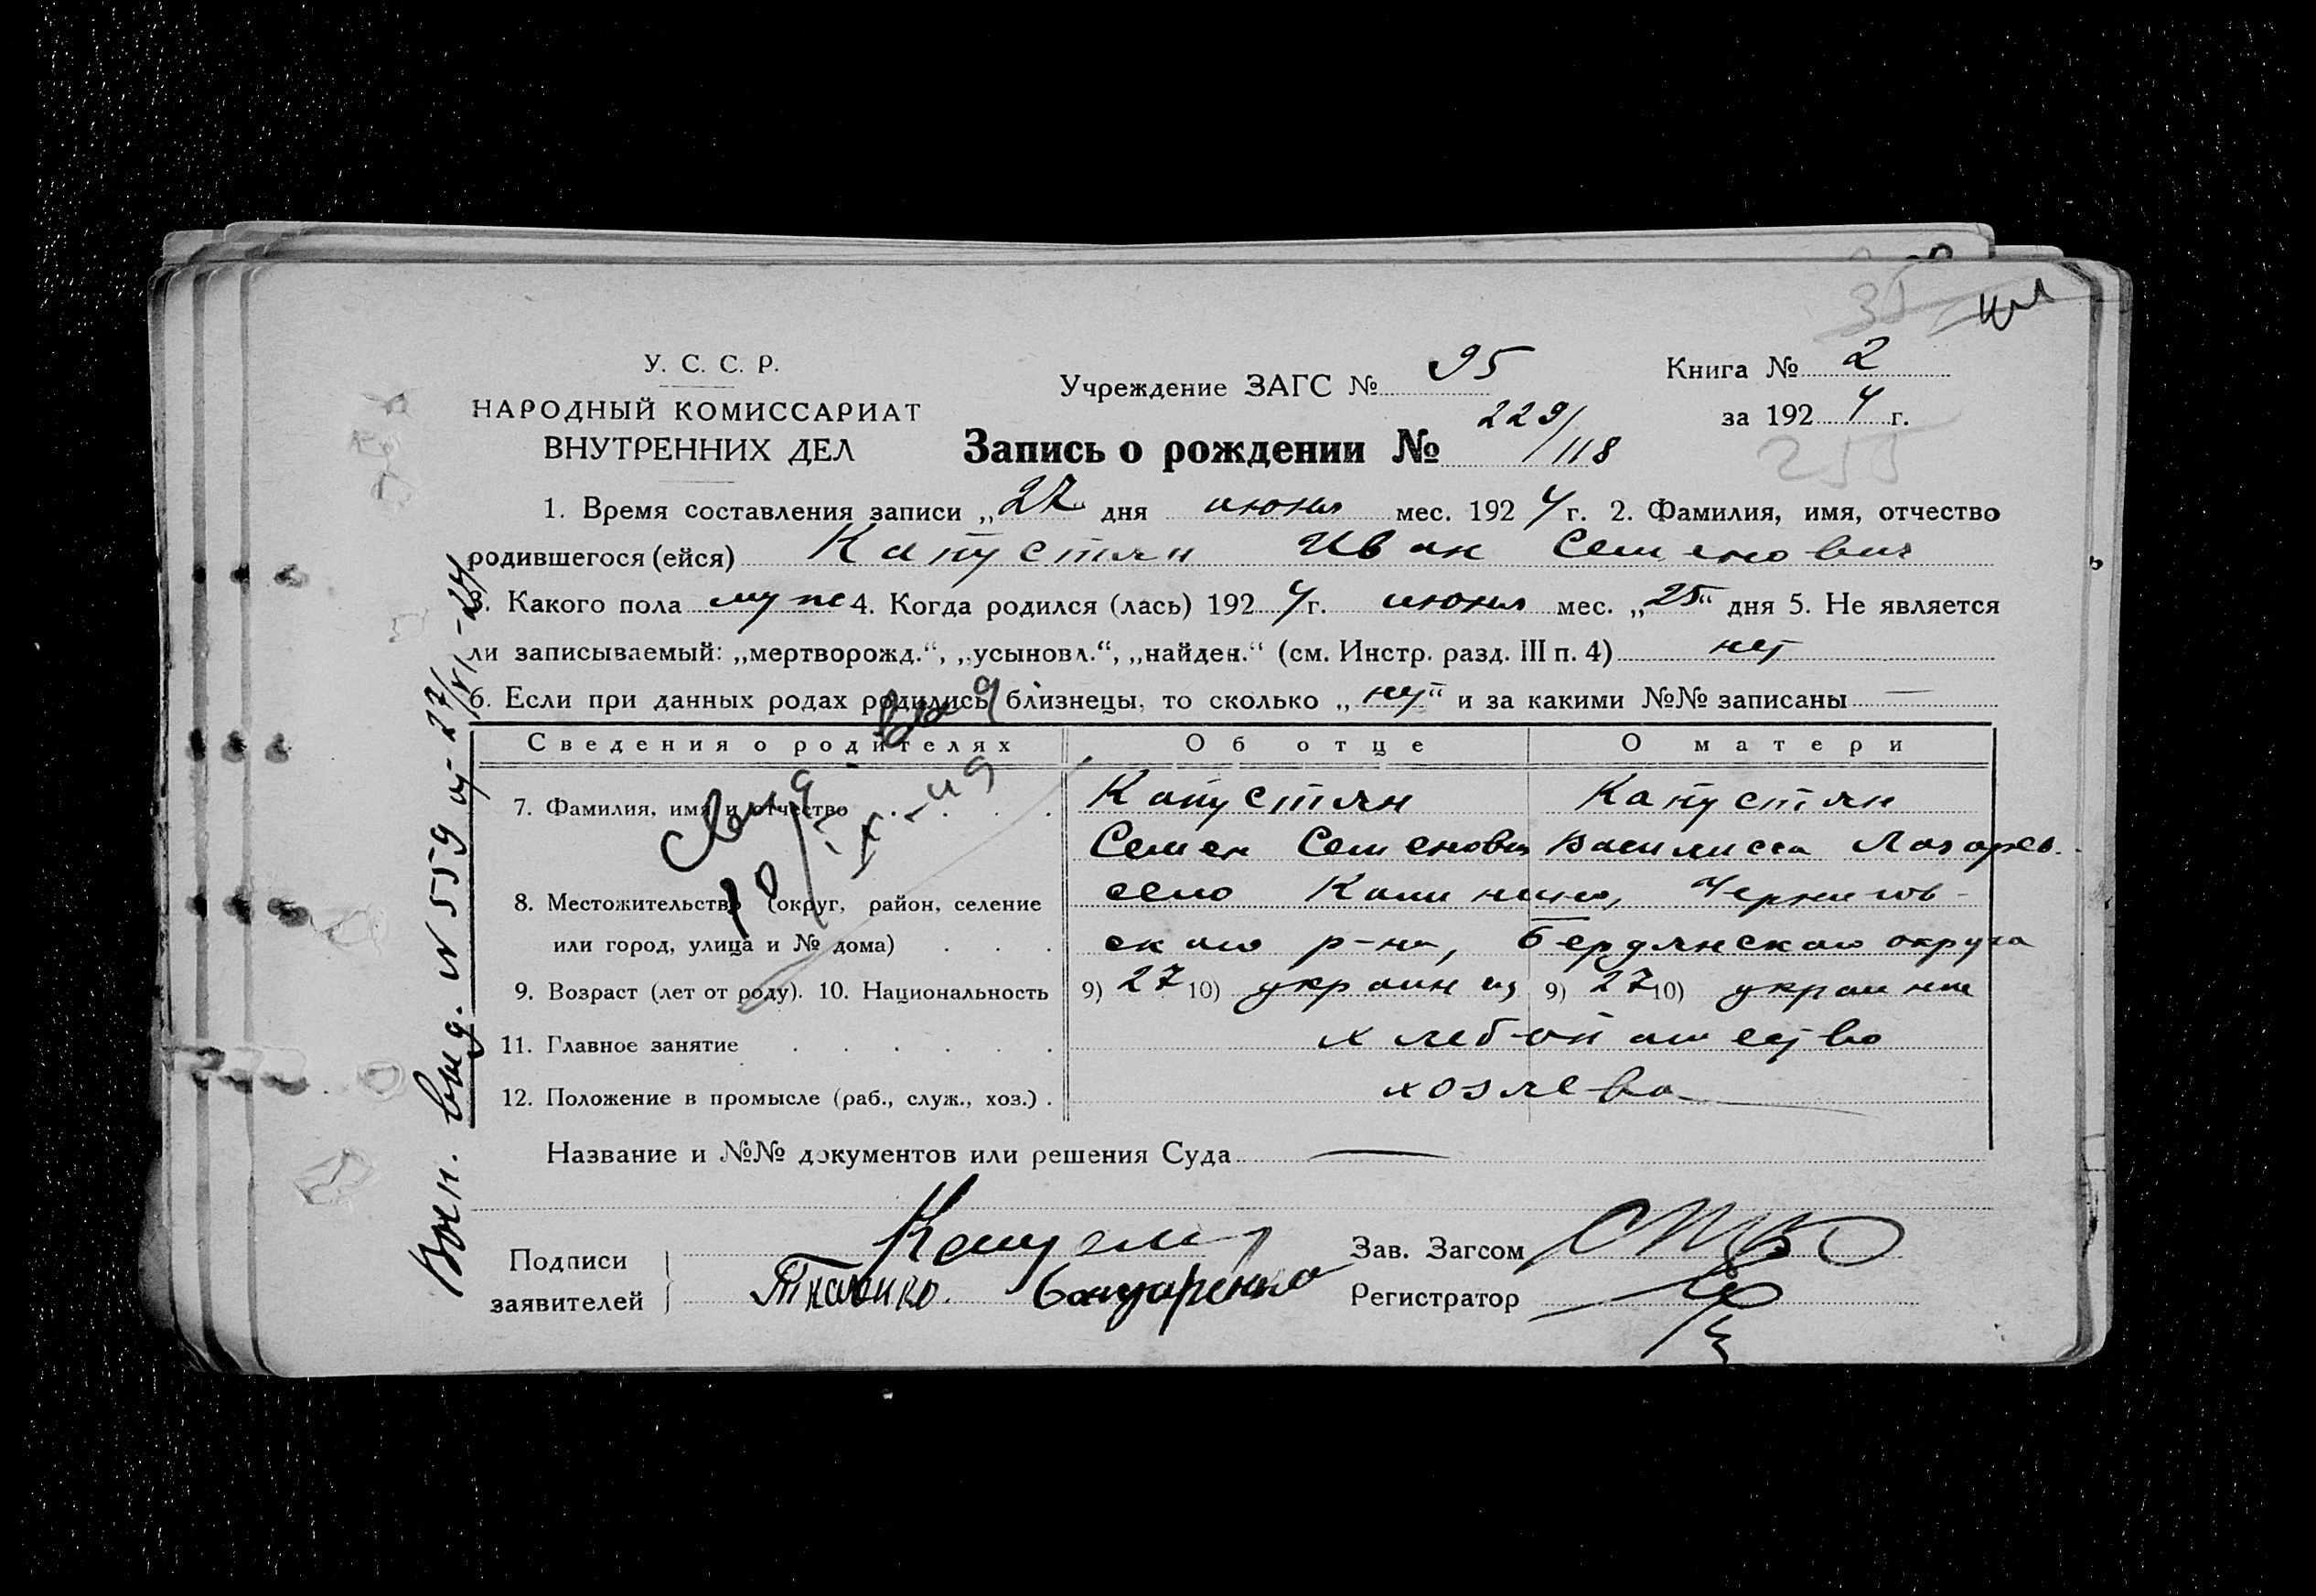 У. С. С. Р.
НАРОДНЫЙ КОМИССАРИАТ
ВНУТРЕННИХ ДЕЛ
Учреждение ЗАГС № 95
Книга № 2
за 1924 г.
Запись о рождении № 229/118
255
1. Время составления записи „27“ дня июня мес. 1924 г. 2. Фамилия, имя, отчество
родившегося (ейся) Капустян Иван Семенович
3. Какого пола муж 4. Когда родился (лась) 1924 г. июня мес. „25“ дня 5. Не является
ли записываемый: „мертворожд.“, „усыновл.“, „найден.“ (см. Инстр. разд. III п. 4) нет
6. Если при данных родах родились близнецы, то сколько „нет“ и за какими №№ записаны —
Сведения о родителях Об отце О матери
7. Фамилия, имя и отчество . . . . Капустян Капустян
Семен Семенович Василисса Лазарев.
8. Местожительство (округ, район, селение село Чернигов-
или город, улица и № дома) . . . ского р-на, Бердянского округа
9. Возраст (лет от роду). 10. Национальность 9) 27 10) украинец 9) 27 10) украинка
11. Главное занятие . . . . . . хлебопашество
12. Положение в промысле (раб., служ., хоз.) . хозяева
Название и №№ документов или решения Суда —
Подписи
заявителей
Ткаченко
Зав. Загсом
Регистратор
выд. № 559 от 27/VI-24